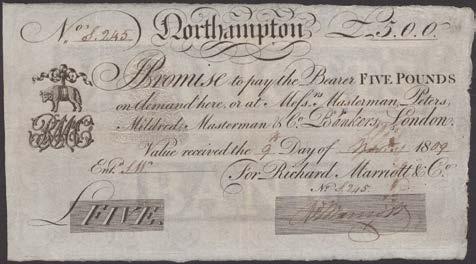 No. 8.245 Northampton £5.0.0.
I Promise to pay the Bearer FIVE POUNDS
on demand here, or at Messrs. Masterman, Peters,
Mildred, Masterman & Co. Bankers, London.
Value received the 9 Day of 1809
Entd.
For Richard Marriott & Co.
No. 8.245.
£ FIVE.